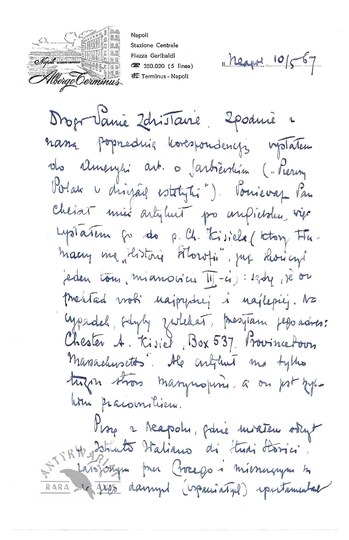 Napoli
Stazione Centrale
Piazza Garibaldi
☎ 350.020 (5 linee)
Terminus - Napoli
Albergo Terminus
Neapol 10/5 67
Drogi Panie Zdzisławie, Zgodnie z
naszą poprzednią korespondencją wysłałem
do Ameryki art. o Sarbiewskim ("Pierwszy
Polak w dziejach estetyki"). Ponieważ Pan
chciał mieć artykuł po angielsku, więc
wysłałem go do p. Ch. Kisiela (który tłu-
maczy mą "Historię Filozofii", już skończył
jeden tom, mianowicie III-ci): sądzę, że on
przekład zrobi najprędzej i najlepiej. Na
wypadek, gdyby zwlekał, przesyłam jego adres:
Chester A. Kisiel, Box 537, Provincetown
Massachusetts". Ale artykuł ma tylko
stron maszynopisu, a on jest szyb-
kim pracownikiem.
Piszę z Neapolu, gdzie miałem odczyt
w Istituto Italiano di Studi Storici
założonym przez Crocego i mieszczącym się
w jego dawnym (wspaniałym) apartamencie
ANTYKWARIAT
RARA